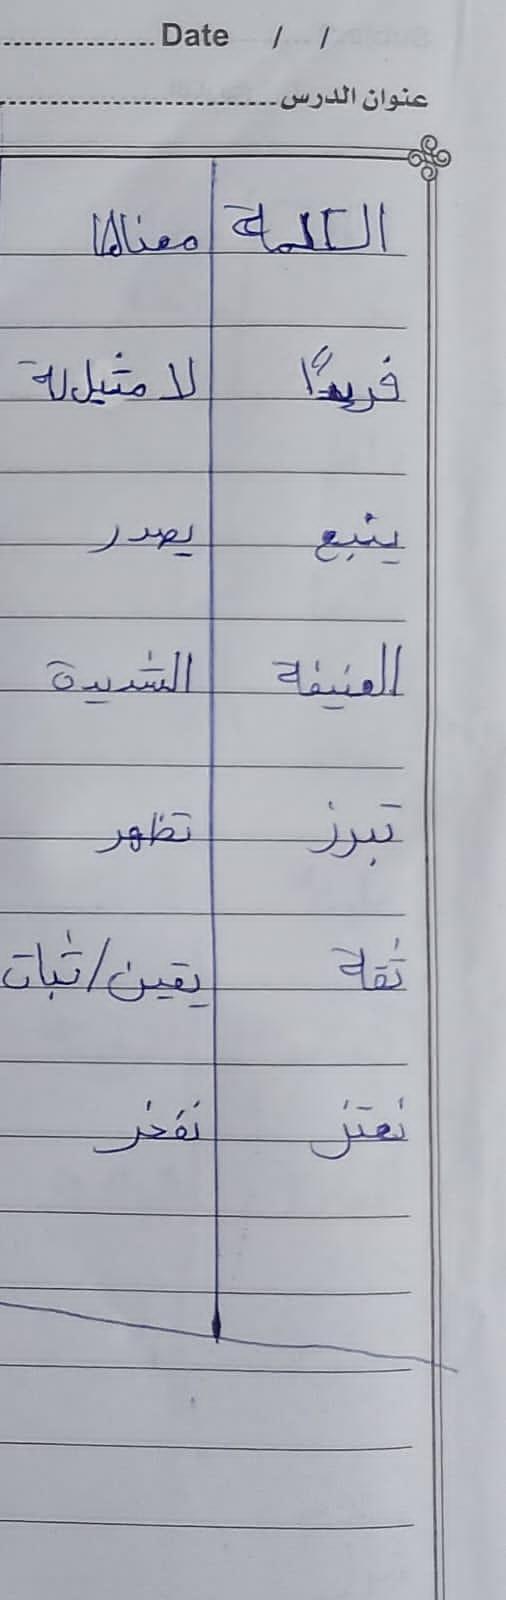 Date / /
عنوان الدرس
الكلمة معناها
فريدًا لا مثيل له
ينبع يصدر
العنيفة الشديدة
تبرز تظهر
ثقة يقين/ثبات
نعتز نفخر